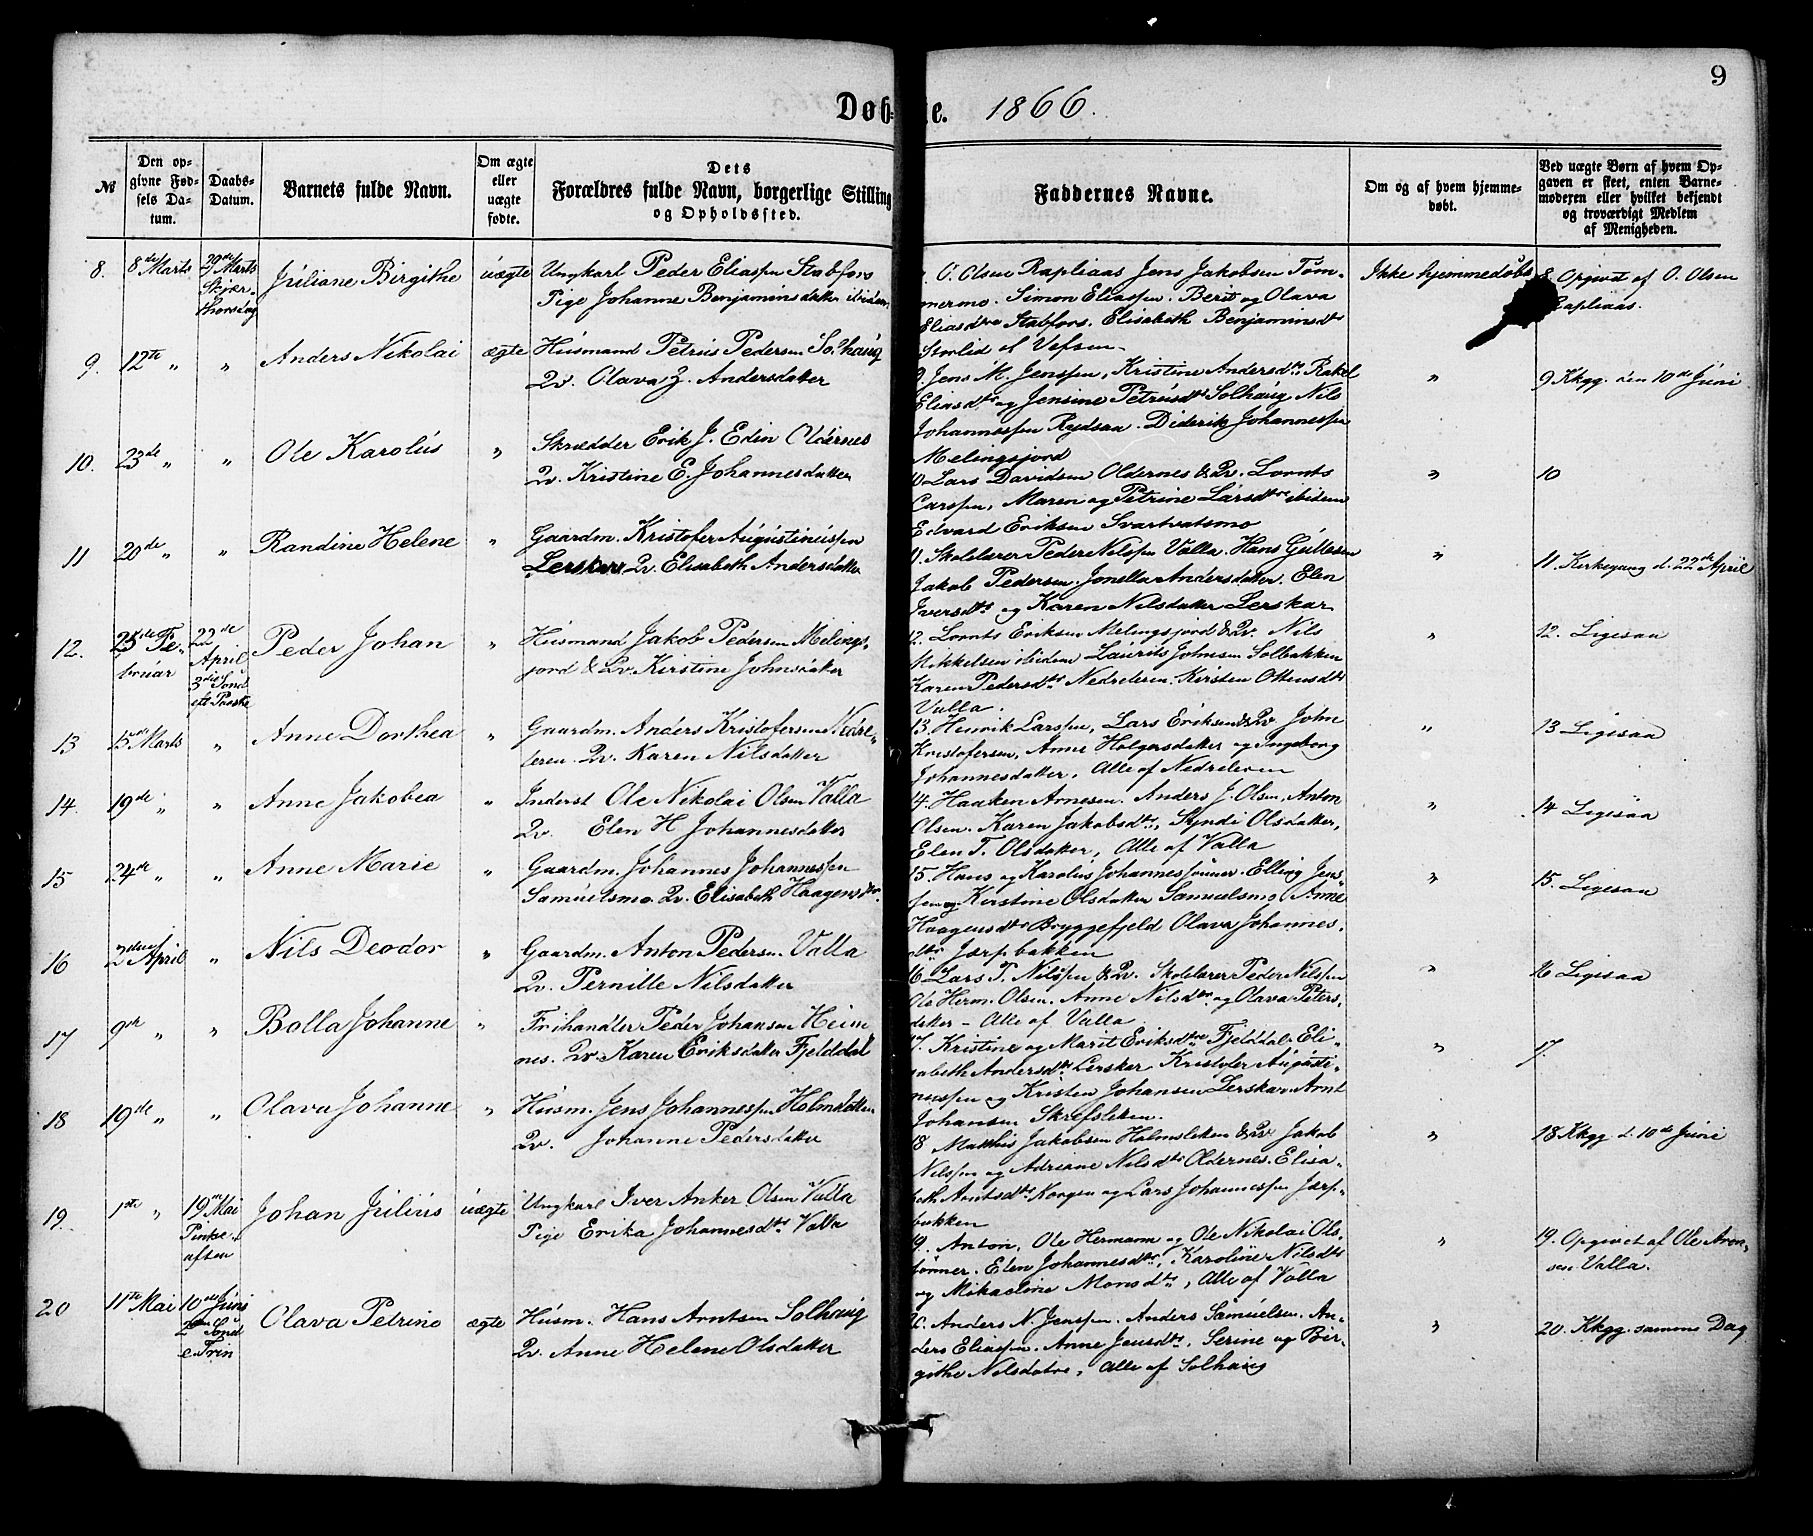 9
Døb-
te. 1866.
№
Den op-
givne Fød-
sels Da-
tum.
Daabs-
Datum.
Barnets fulde Navn.
Om ægte
eller
uægte
fødte.
Dets
Forældres fulde Navn, borgerlige Stilling
og Opholdssted.
Faddernes Navne.
Om og af hvem hjemme-
døbt.
Ved uægte Børn af hvem Op-
gaven er skeet, enten Barne-
moderen eller hvilket bekjendt
og troværdigt Medlem
af Menigheden.
8.
8de Marts
29de Marts
Skjær-
thorsdag
Juliane Birgithe
uægte
Ungkarl Peder Eliassen Stabfors
Pige Johanne Benjaminsdatter ibidem
O. Olsen Rapliaas Jens Jakobsen Tøm-
mermo. Simon Eliassen. Berit og Olava
Eliasdtre Stabfors. Elisabeth Benjaminsdtr
Storlid af Vefsen
Ikke hjemmedøbt
8 Opgivet af O. Olsen
Rapliaas.
9.
12te "
"
Anders Nikolai
ægte
Husmand Petrus Pedersen Solhaug
Qv. Olava Z. Andersdatter
9. Jens M. Jenssen, Kristine Andersdtr Rakel
Eliasdtr og Jensine Petrusdtr Solhaug Nils
Johannessen Rydsaa. Diderik Johannessen
Melingsjord
"
9 Kkgg. den 10de Juni
10.
23de "
"
Ole Karolus
"
Skrædder Erik J. Edin Oldernes
Qv. Kristine E. Johannesdatter
10 Lars Davidsen Oldernes & Qv. Lornts
Larssen, Maren og Petrine Larsdtre ibidem
Edvard Eriksen Svartvatsmo
"
10
11
20de "
"
Randine Helene
"
Gaardm. Kristofer Augustinussen
Lerskar Qv. Elisabeth Andersdatter
11. Skolelærer Peder Nilssen Valla. Hans Gullesen
Jakob Pedersen. Jonella Andersdatter. Elen
Iversdtr og Karen Nilsdatter Lerskar
"
11. Kirkegang d. 22de April
12.
25de Fe-
bruar
22de
April
3die Sond
eft Paaske
Peder Johan
"
Husmand Jakob Pedersen Melings-
jord & Qv. Kirstine Johnsdatter
12. Lornts Eriksen Melingsjord & Qv. Nils
Mikkelsen ibidem Laurits Johnsen Solbakken
Karen Pedersdtr Nedreleren. Kirsten Ottensdtr
Valla.
"
12. Ligesaa
13
13de Marts
"
Anne Dorthea
"
Gaardm. Anders Kristofersen Nedre-
leren. Qv. Karen Nilsdatter
13. Henrik Larssen, Lars Eriksen & Qv John
Kristofersen, Anne Holgersdatter og Ingeborg
Johannesdatter, Alle af Nedreleren
"
13 Ligesaa
14.
19de "
"
Anne Jakobea
"
Inderst Ole Nikolai Olsen Valla
Qv. Elen H Johannesdatter
14. Haaken Arnesen. Anders J. Olsen, Anton
Olsen. Karen Jakobsdtr, Syndi Olsdatter,
Elen T. Olsdatter, Alle af Valla
"
14 Ligesaa
15
24de "
"
Anne Marie
"
Gaardm. Johannes Johannessen
Samuelsmo. Qv. Elisabeth Haagensdtr.
15. Hans og Karolus Johannessønner. Elling Jens
sen og Kirstine Olsdatter Samuelsmo Anne
Haagensdtr Bryggefjeld Olava Johannes-
dtr Jærpbakken
"
15. Ligesaa
16
2den April
"
Nils Deodor
"
Gaardm. Anton Pedersen Valla
Qv. Pernille Nilsdatter
16 Lars T. Nilssen & Qv. Skolelærer Peder Nilssen
Ole Herm. Olsen. Anne Nilsdtr og Olava Peters-
datter – Alle af Valla
"
16 Ligesaa
17
9de "
"
Bolla Johanne
"
Frihandler Peder Johansen Heim
nes. Qv. Karen Eriksdatter Fjelddal
17. Kristine og Marit Eriksdtre Fjelddal. Eli-
sabeth Andersdtr Lerskar Kristofer Augusti-
nussen og Kristen Johansen Lerskar Arnt
Johansen Skrefsleken.
"
17.
18
19de "
"
Olava Johanne
"
Husm. Jens Johannessen Holmsletten
Qv. Johanne Pedersdatter
18 Mathis Jakobsen Holmsleken & Qv Jakob
Nilssen og Adriane Nilsdtr Oldernes. Elisa-
beth Arntsdtr Korgen og Lars Johannessen Jærp-
bakken
"
18 Kkgg d. 10de Juni
19.
1ste "
19de Mai
Pintse-
aften
Johan Julius
uægte
Ungkarl Iver Anker Olsen Valla
Pige Erika Johannesdtr Valla
19. Anton, Ole Hermann og Ole Nikolai Ols-
sønner. Elen Johannesdtr, Karoline Nilsdtr
og Mikaeline Monsdtr, Alle af Valla
"
19. Opgivet af Ole Aron-
sen Valla.
20
11te Mai
10de Juni
2den Sond
e Trin
Olava Petrine
ægte
Husm. Hans Arntsen Solhaug
Qv. Anne Helene Olsdatter
20. Anders N. Jenssen. Anders Samuelsen. An-
ders Eliassen. Anne Jensdtr, Serine og Bir-
githe Nilsdøtre, Alle af Solhaug
"
20. Kkgg. samme Dag